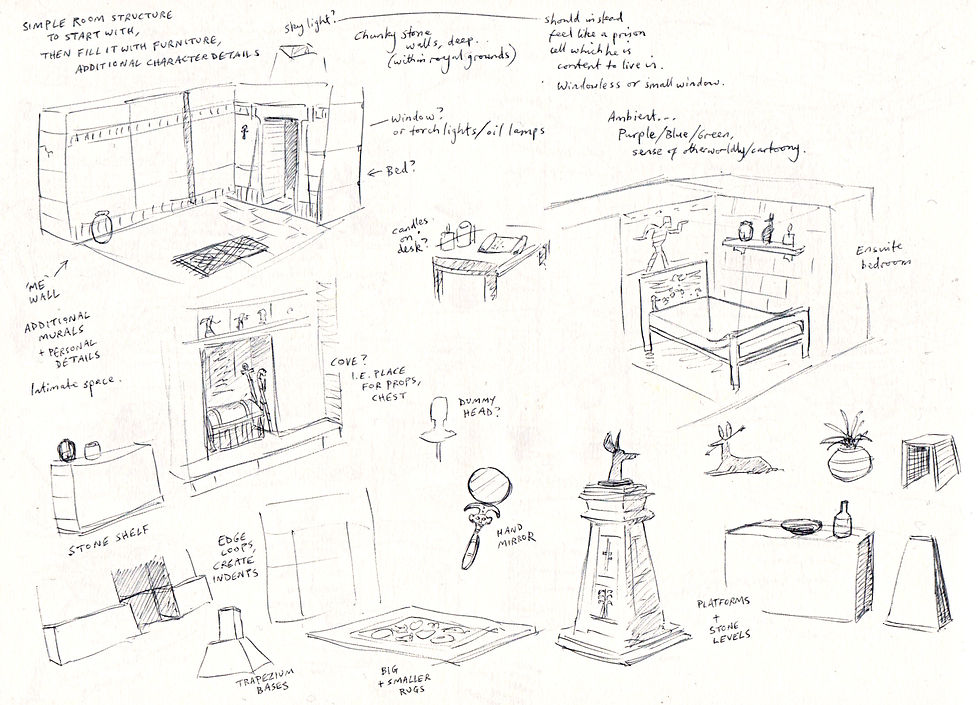 SIMPLE ROOM STRUCTURE
TO START WITH,
THEN FILL IT WITH FURNITURE,
ADDITIONAL CHARACTER DETAILS
sky light?
Chunky stone
walls, deep..
(within royal grounds)
should instead
feel like a prison
cell which he is
content to live in.
Windowless or small window.
Window?
or torch lights/oil lamps
Bed?
Ambient...
Purple/Blue/Green,
sense of otherworldly/cartoony.
candles
on
desk?
Ensuite
bedroom
'ME'
WALL
ADDITIONAL
MURALS
+ PERSONAL
DETAILS
Intimate space.
COVE?
I.E. PLACE
FOR PROPS,
CHEST
DUMMY
HEAD?
STONE SHELF
EDGE
LOOPS,
CREATE
INDENTS
HAND
MIRROR
TRAPEZIUM
BASES
BIG
+ SMALLER
RUGS
PLATFORMS
+
STONE
LEVELS